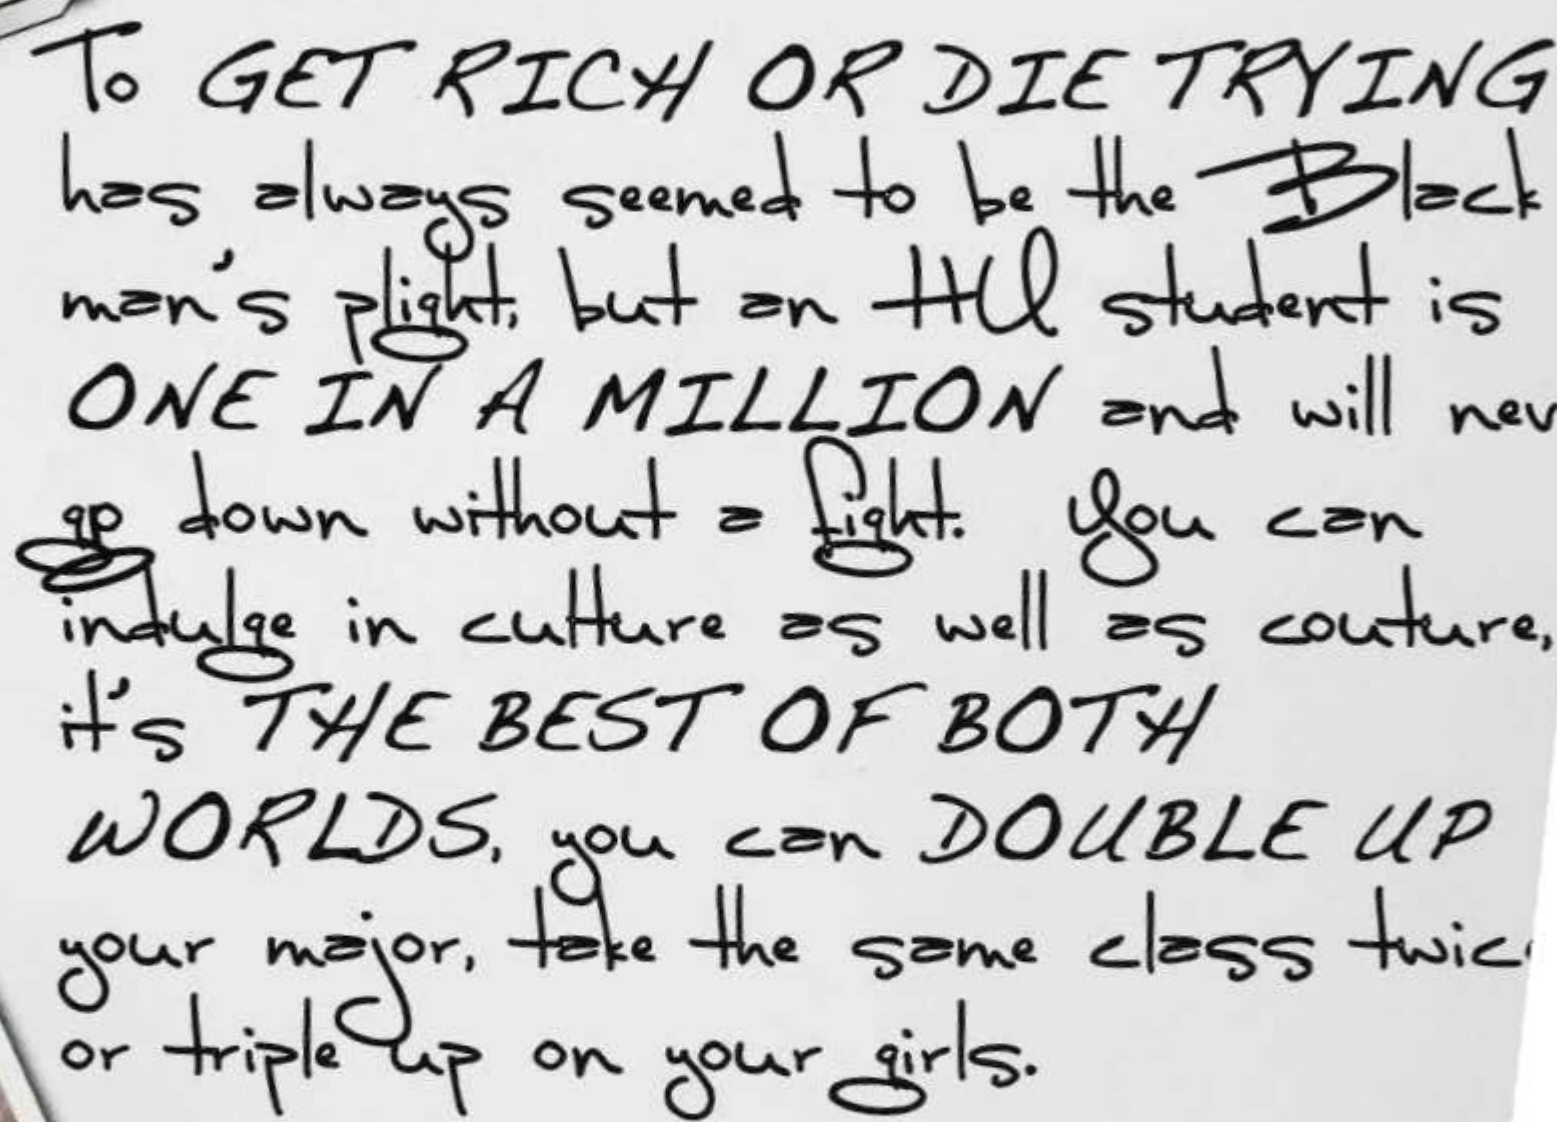 To GET RICH OR DIE TRYING
has always seemed to be the Black
man's plight, but an HU student is
ONE IN A MILLION and will nev
go down without a fight. You can
indulge in culture as well as couture,
it's THE BEST OF BOTH
WORLDS, you can DOUBLE UP
your major, take the same class twic
or triple up on your girls.